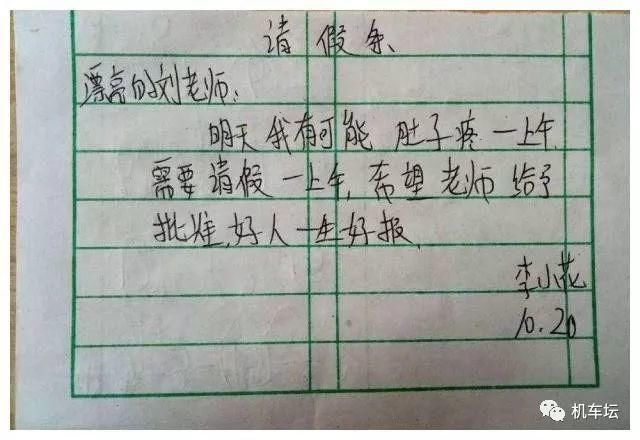 请假条
漂亮的刘老师:
明天我有可能 肚子疼一上午
需要请假一上午,希望老师给予
批准,好人一生好报.
李小花
10.20
机车坛